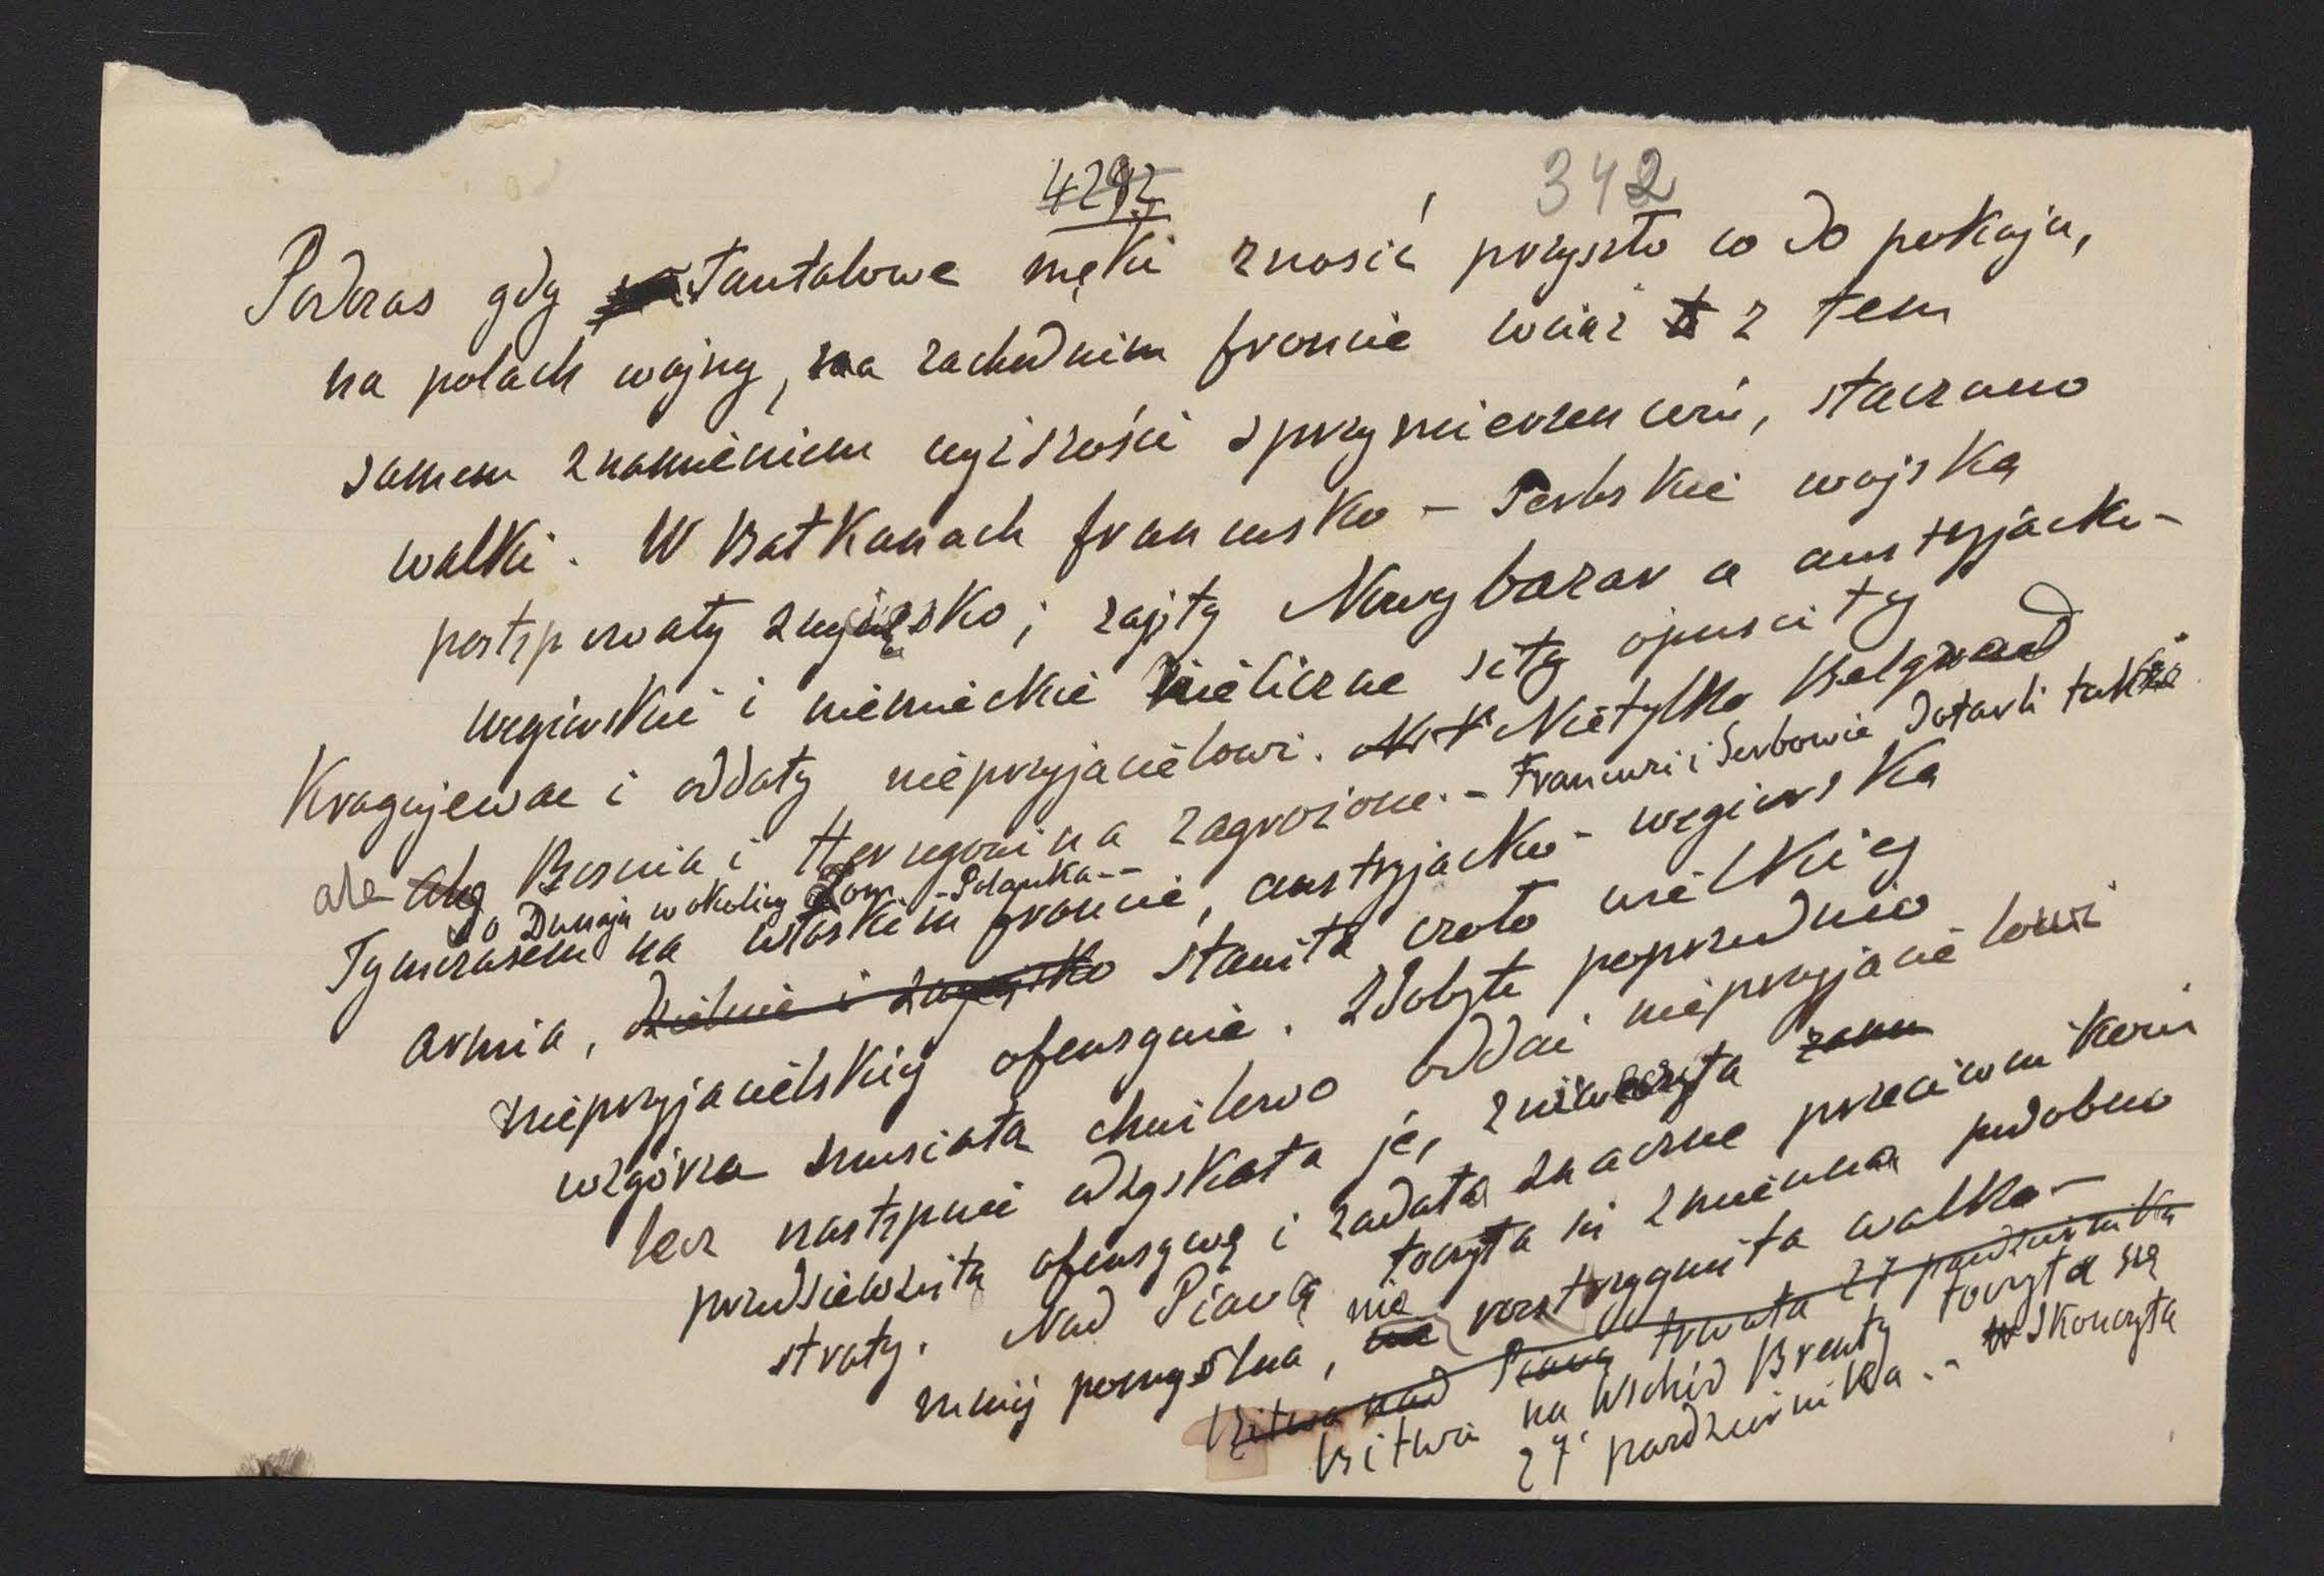 4292
342
Podczas gdy Tantalowe męki znosić przyszło co do pokoju,
na polach wojny, na zachodnim froncie wciąż z tem
samem znamieniem wyższości sprzymierzeńców, staczano
walki. W Bałkanach francusko - serbskie wojska
postępowały zwycięsko; zajęły Nowybazar a austryjacko-
węgierskie i niemieckie nieliczne siły opuściły
Kragujewac i oddały nieprzyjacielowi. Nietylko Belgrad
ale ale Bosnia i Hercegowina zagrożone. - Francuzi i Serbowie dotarli także
do Dunaju w okolicy Lom - Palanka --
Tymczasem na włoskim froncie, austryjacko - węgierska
armia, dzielnie i zwycięsko stawiła czoło wielkiej
nieprzyjacielskiej ofensywie. Zdobyte poprzednio
wzgórza musiała chwilowo oddać nieprzyjacielowi
lecz następnie odzyskała je, zniweczyła
przedsięwziętą ofensywę i zadała znaczne przeciwnikowi
straty. Nad Piavą toczyła się zmienna podobno
mniej pomyślna, nie rozstrzygnięta walka -
Bitwa nad Piavą trwała 27 październ­ika
Bitwa na wschód Brenty toczyła się
27 października. - Skończyła